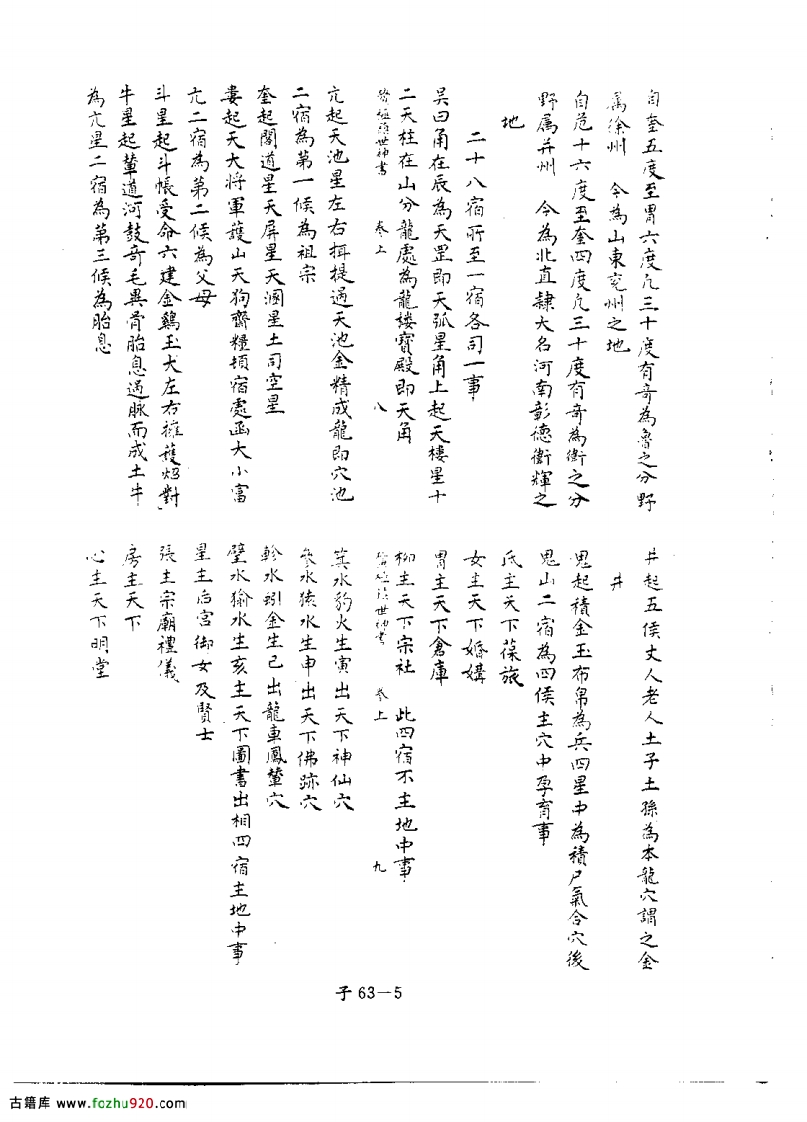 自奎五度至胃六度凡三十度有奇為魯之分野
属徐州　今為山東兗州之地
自危十六度至奎四度凡三十度有奇為衛之分
野属并州　今為北直隸大名河南彰德衛輝之
地
二十八宿所至一宿各司一事
吴曰角在辰為天罡即天弧星角上起天樓星十
二天柱在山分龍處為龍樓寶殿即天角
世神書　卷上　八
亢起天池星左右揖提過天池金精成龍即穴池
二宿為第一候為祖宗
奎起閣道星天屏星天溷星土司空星
婁起天大將軍護山天狗齋糧頓宿處函大小富
亢二宿為第二候為父母
斗星起斗帳受命六建金鷄玉犬左右擁護對
牛星起輦道河鼓奇毛異骨胎息過脉而成土牛
為亢星二宿為第三候為胎息
井起五侯丈人老人土子土孫為本龍穴謂之金
井
鬼起積金玉布帛為兵四星中為積尸氣合穴後
鬼山二宿為四侯主穴中孕育事
氐主天下葆旅
女主天下婚媾
胃主天下倉庫
柳主天下宗社　此四宿不主地中事
世神書　卷上　九
箕水豹火生寅出天下神仙穴
參水猿水生申出天下佛跡穴
軫水蚓金生巳出龍車鳳輦穴
壁水貐水生亥主天下圖書出相四宿主地中事
星主后宮御女及賢士
張主宗廟禮儀
房主天下
心主天下明堂
子 63—5
古籍库 www.fozhu920.com